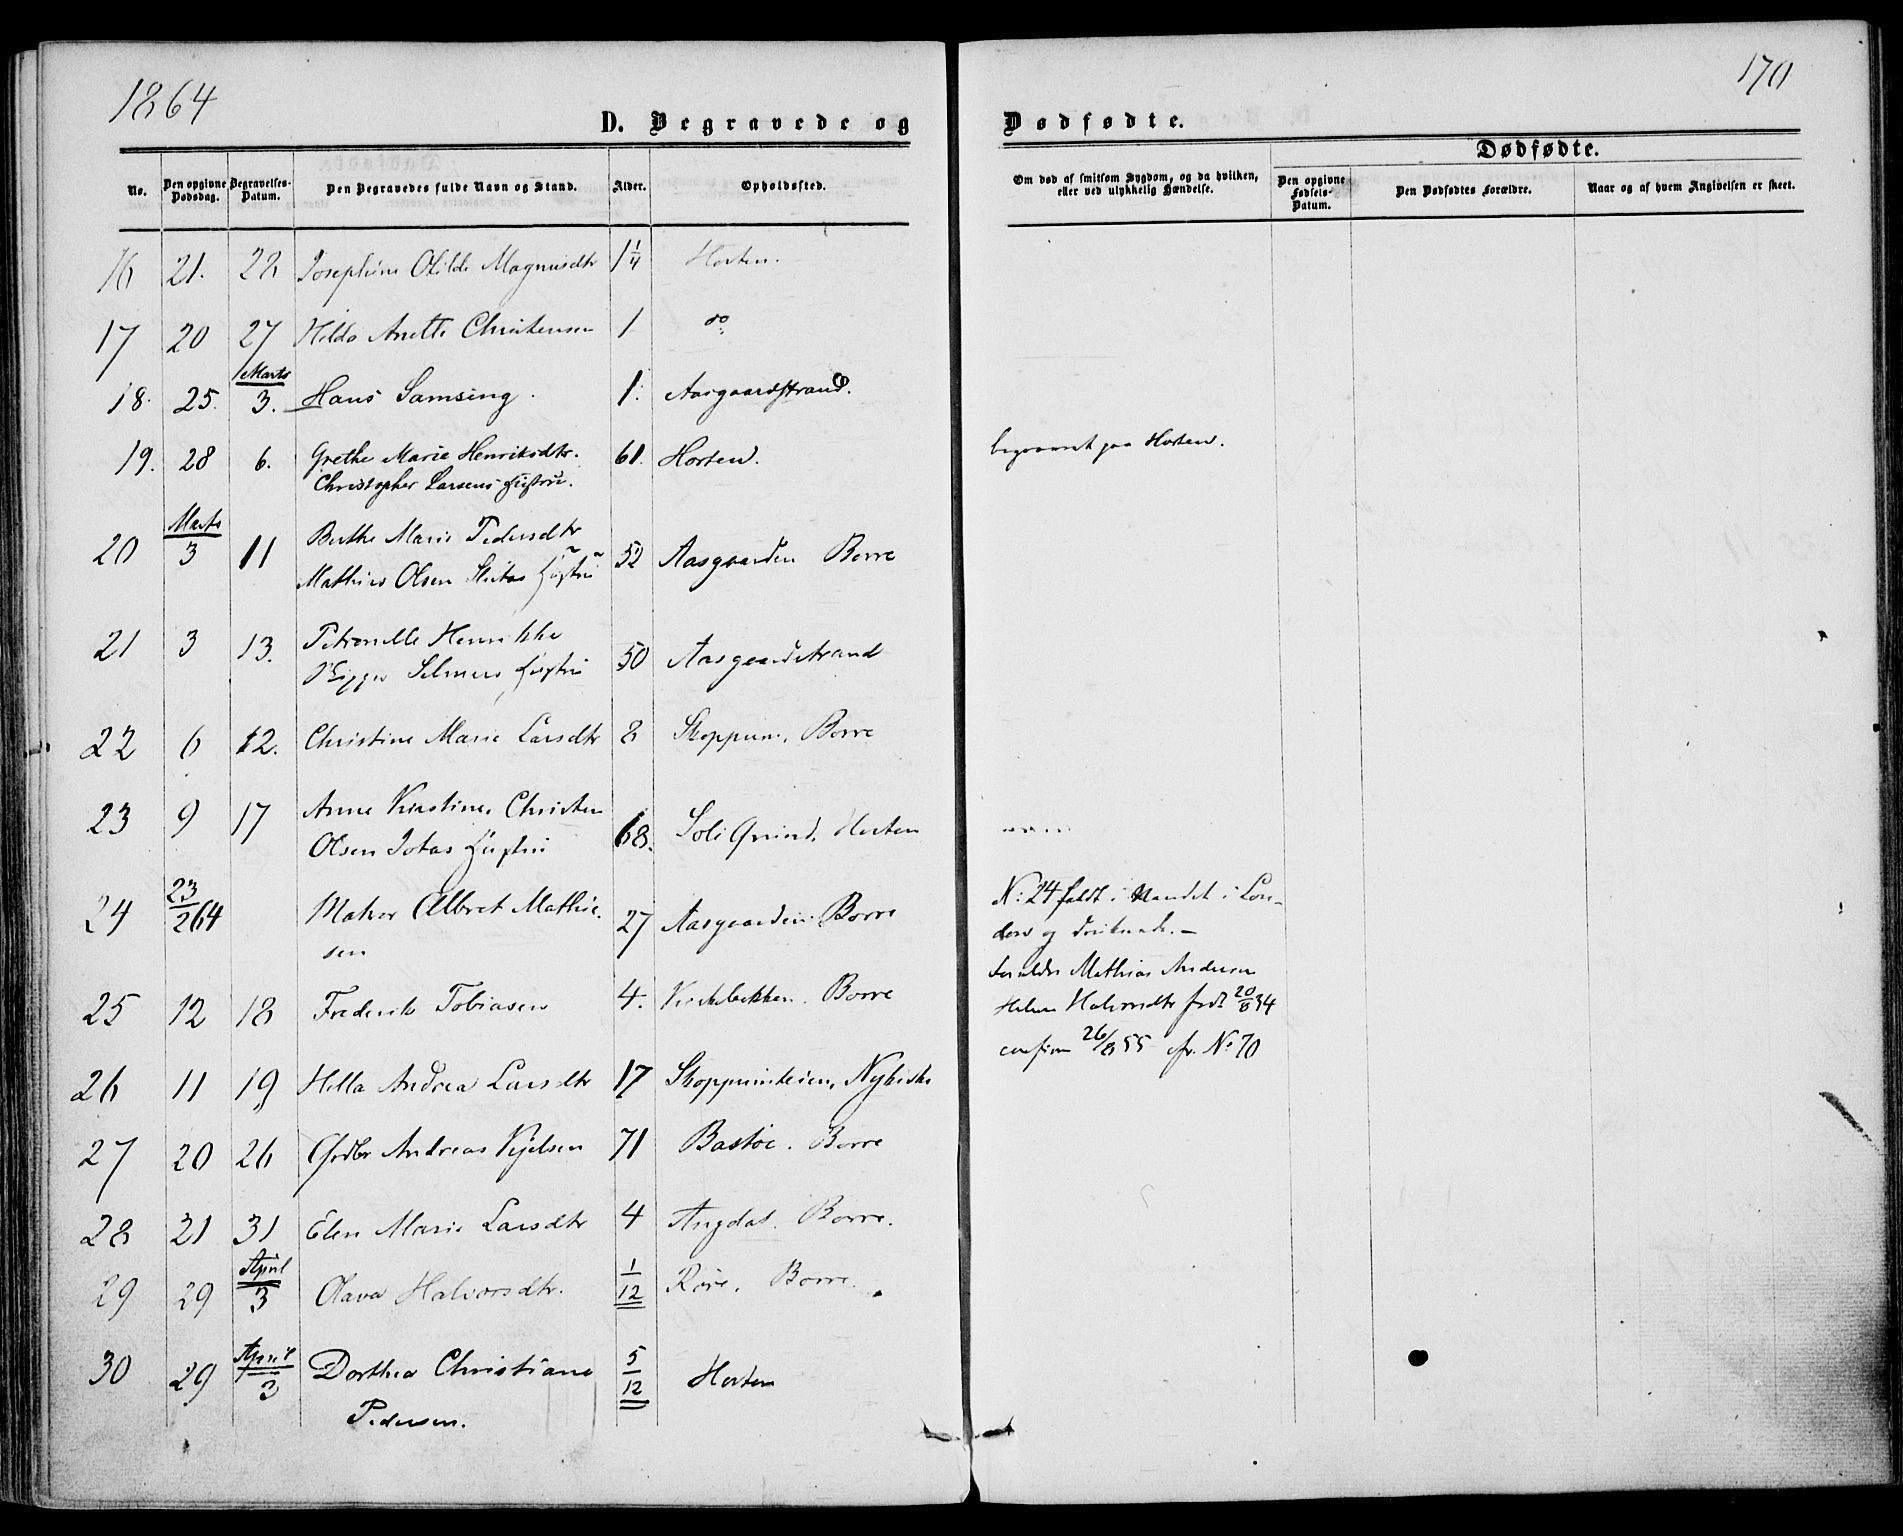 1864
170
D. Begravede og Dødfødte.
Dødfødte.
No.
Den opgivne Dødsdag.
Begravelses-Datum.
Den Begravedes fulde Navn og Stand.
Alder.
Opholdssted.
Om død af smitsom Sygdom, og da hvilken,
eller ved ulykkelig Hændelse.
Den opgivne Fødsels-Datum.
Den Dødfødtes Forældre.
Naar og af hvem Angivelsen er skeet.
16 21. 28 Josephine Otilde Magnusdtr 1 1/4 Horten.
17 20 27 Hilda Anette Christensen 1 do
Marts
18. 25. 3. Hans Samsing. 1. Aasgaardstrand.
19. 28 6. Grethe Marie Henriksdtr. 61. Horten. begravet paa Horten.
Christopher Larsens Hustru.
Marts
20 3 11 Berthe Marie Pedersdtr 52 Aasgaarden Borre
Mathias Olsen Hustru
21 3 13. Petronelle Henrikke 50 Aasgaardstrand
Selmers Hustru
22 6 12. Christine Marie Larsdtr 8 Skoppum, Borre
23 9 17 Anne Kirstine, Christen 68. Horten
Olsen Hustru
24 23/2 64 Albret Mathie- 27 Aasgaarden. Borre
sen
N: 24 faldt i Vandet i Lon-
don og druknede. –
Forældre Mathias Andersen
25 12 18 Frederik Tobiasen 4. Borre
Helene Halvorsdtr født 20/8 34
confirm 26/8 55 cfr. No 70
26 11 19 Andrea Larsdtr 17
27 20 26 Andreas Kjelsen 71 Bastøe. Borre
28 21 31 Elen Marie Larsdtr 4 Borre.
April
29 29 3 Olava Halvorsdtr. 1/12 Røre. Borre.
April
30 29 3 Dorthea Christiane 5/12 Horten
Pedersen.